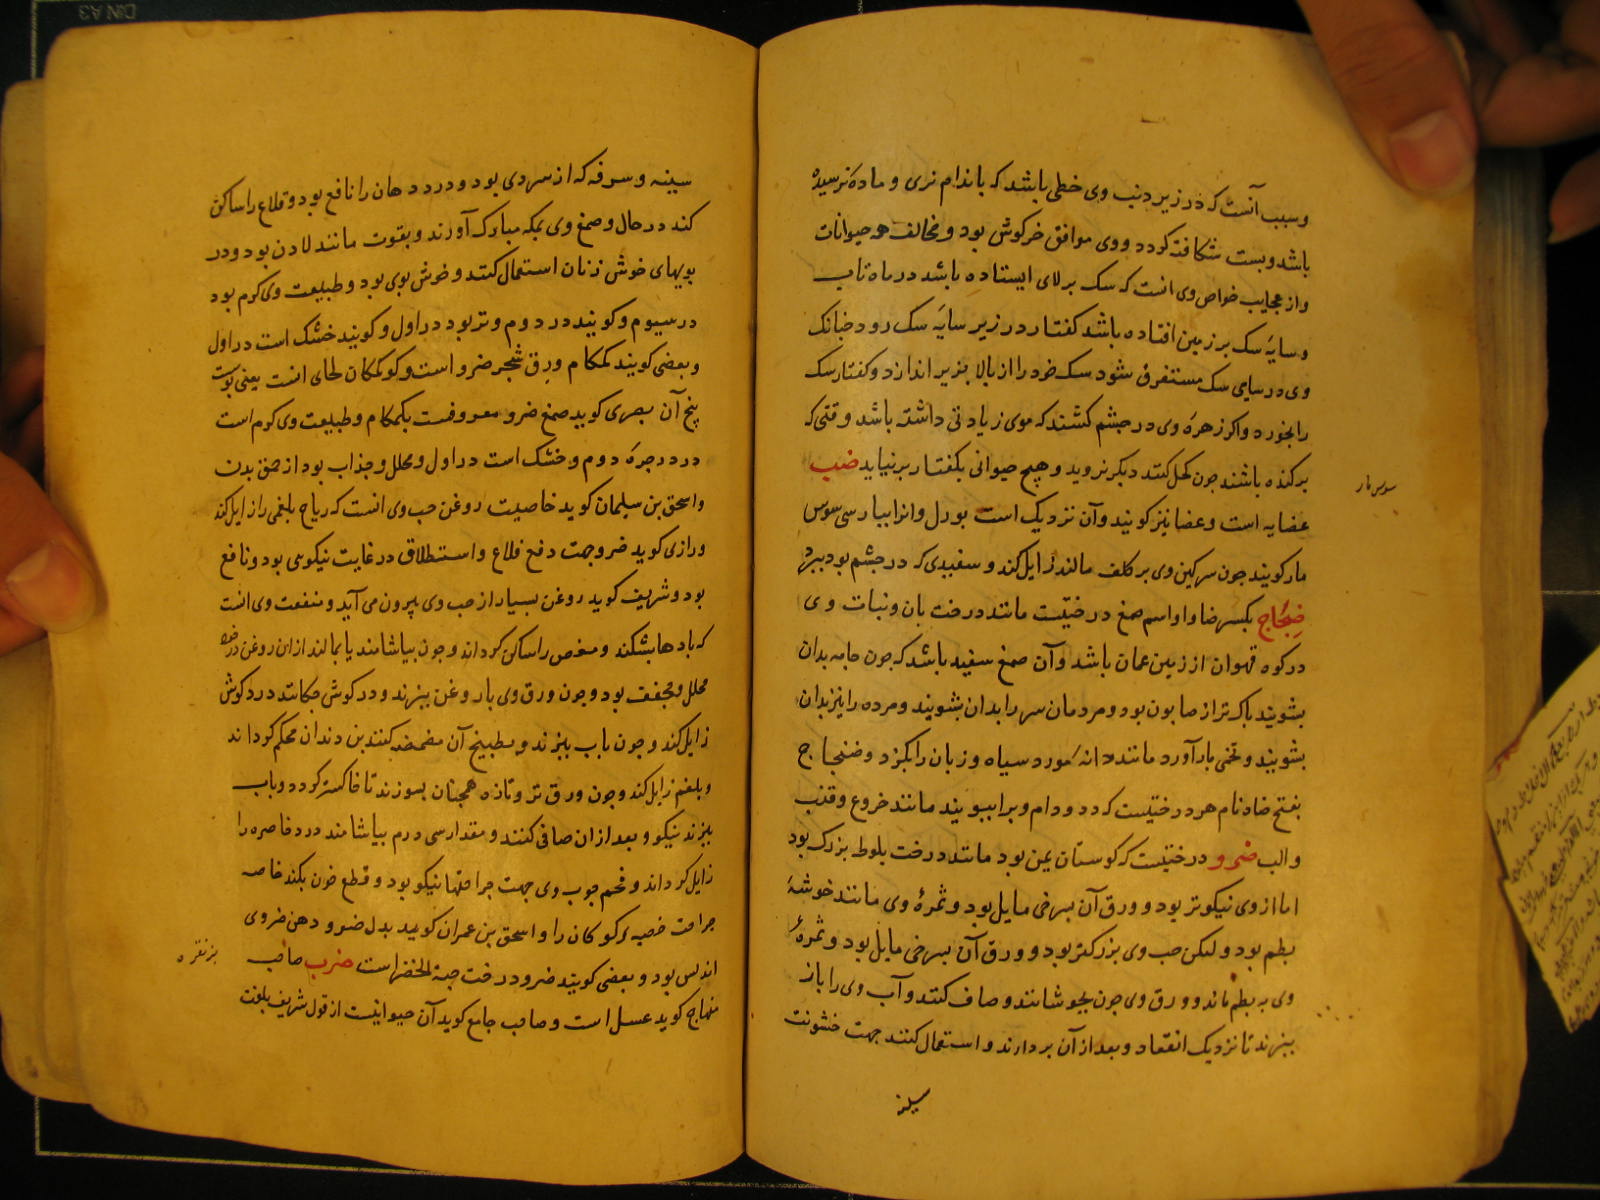 وسبب آنست که در زیر دنب وی خطی باشد که باندام نری و ماده نرسیده
باشد و بست شکافته کردد و وی موافق خرکوش بود و مخالف همه حیوانات
و از عجایب خواص وی انست که سک بر لای ایستاده باشد در ماه تاب
و سایه سک بر زمین افتاده باشد کفتار در زیر سایه سک رود چنانک
وی در سایه سک مستغرق شود سک خود را از بالا بزیر اندازد و کفتار سک
را بخورد و اکر زهره وی در چشم کشند که موی زیادتی داشته باشد وقتی که
برکنده باشند چون کحل کنند دیکر نروید و هیچ حیوانی بکفتار برنیاید ضب
عضایه است و عضا نیز کویند و آن نزدیک است بورل و انرا بپارسی سوس
مار کویند چون سرکین وی بر کلف مالند زایل کند و سفیدی که در چشم بود ببرد
ضجاج بکسر ضاد او اسم صمغ درختیست مانند درخت بان و نبات وی
در کوه قهوان از زمین عمان باشد و آن صمغ سفید باشد که چون جامه بدان
بشویند پاک تر از صابون بود و مردمان سر را بدان بشویند و مرده را نیز بدان
بشویند و تخمی بار آورد مانند دانه مورد سیاه و زبان را بکزد و ضجاج
بفتح ضاد نام هر درختیست که دد و دام و برا ببویند مانند خروع و قذب
و الب ضرو درختیست که کوستان یمن بود مانند درخت بلوط بزرک بود
اما از وی نیکوتر بود و ورق آن بسرخی مایل بود و ثمره وی مانند خوشه
بطم بود و لیکن حب وی بزرکتر بود و ورق آن بسرخی مایل بود و ثمره
وی به بطم ماند و ورق وی چون بجوشانند و صاف کنند و آب وی را باز
بپزند تا نزدیک انعقاد و بعد از آن بردارند و استعمال کنند جهت خشونت
سینه
سوس مار
سینه و سرفه که از سردی بود و درد دهان را نافع بود و قلاع را ساکن
کند در حال و صمغ وی بمکه مبارک آورند و بقوت مانند لادن بود و در
بویهای خوش زنان استعمال کنند و خوش بوی بود و طبیعت وی کرم بود
در سیوم و کویند در دوم و تر بود در اول و کویند خشک است در اول
و بعضی کویند کمکام ورق شجر ضرو است و کو کمکان لحای انست یعنی پوست
بیخ آن بصری کوید صمغ ضرو معروفست بکمکام و طبیعت وی کرم است
در درجه دوم و خشک است در اول و محلل و جذاب بود از عمق بدن
و اسحق بن سلیمان کوید خاصیت روغن حب وی انست که ریاح بلغمی را زایل کند
و رازی کوید ضرو جهت دفع قلاع و استطلاق در غایت نیکویی بود و نافع
بود و شریف کوید روغن بسیار از حب وی بیرون می آید و منفعت وی انست
که بادها بشکند و مغص را ساکن کرداند و چون بیاشامند یا بمالند از ان روغن
محلل و مجفف بود و چون ورق وی با روغن بپزند و در کوش چکانند درد کوش
زایل کند و چون باب بپزند و بطبیخ آن مضمضه کنند بن دندان محکم کرداند
و بلغم زایل کند و چون ورق تر و تازه همچنان بسوزند تا خاکستر کردد و باب
بپزند نیکو و بعد از ان صافی کنند و مقدار سی درم بیاشامند درد خاصره را
زایل کرداند و فحم چوب وی جهت جراحتها نیکو بود و قطع خون بکند خاصه
جراحت خصیه کوکان را و اسحق بن عمران کوید بدل ضرو دهن ضروی
اندلس بود و بعضی کویند ضرو درخت حبة الخضرا است ضرب صاحب
منهاج کوید عسل است و صاحب جامع کوید آن حیوانیست از قول شریف بلغت